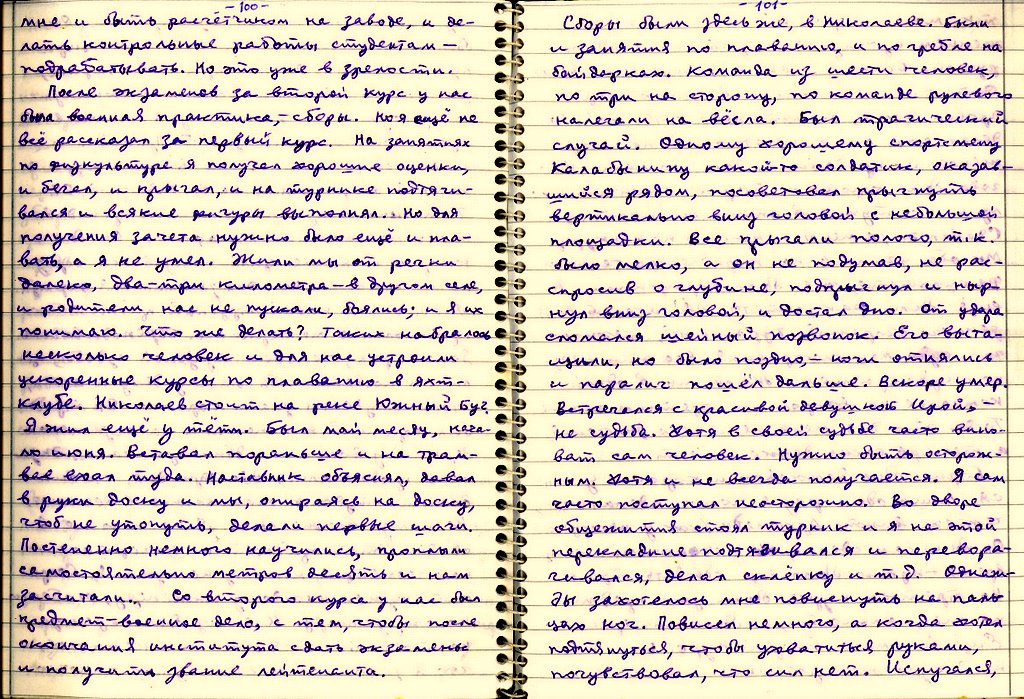 -100-
мне и быть расчётчиком на заводе, и де-
лать контрольные работы студентам —
подрабатывать. Но это уже в зрелости.
После экзаменов за второй курс у нас
была военная практика, – сборы. Но я ещё не
всё рассказал за первый курс. На занятиях
по физкультуре я получал хорошие оценки,
и бегал, и прыгал, и на турнике подтяги-
вался и всякие фигуры выполнял. Но для
получения зачета нужно было ещё и пла-
вать, а я не умел. Жили мы от речки
далеко, два-три километра – в другом селе,
и родители нас не пускали, боялись; и я их
понимаю. Что же делать? Таких набралось
несколько человек и для нас устроили
ускоренные курсы по плаванию в яхт-
клубе. Николаев стоит на реке Южный Буг.
Я жил ещё у тёти. Был май месяц, нача-
ло июня. Вставал пораньше и на трам-
вае ехал туда. Наставник объяснял, давал
в руки доску и мы, опираясь на доску,
чтоб не утонуть, делали первые шаги.
Постепенно немного научились, проплыли
самостоятельно метров десять и нам
засчитали. Со второго курса у нас был
предмет – военное дело, с тем, чтобы после
окончания института сдать экзамены
и получить звание лейтенанта.
-101-
Сборы были здесь же, в Николаеве. Были
и занятия по плаванию, и по гребле на
байдарках. Команда из шести человек,
по три на сторону, по команде рулевого
налегали на вёсла. Был трагический
случай. Одному хорошему спортсмену
Калабынину какой-то солдатик, оказав-
шийся рядом, посоветовал прыгнуть
вертикально вниз головой с небольшой
площадки. Все прыгали полого, т.к.
было мелко, а он не подумав, не рас-
спросив о глубине, подпрыгнул и ныр-
нул вниз головой, и достал дно. От удара
сломался шейный позвонок. Его выта-
щили, но было поздно, – ноги отнялись
и паралич пошёл дальше. Вскоре умер.
Встречался с красивой девушкой Ирой, –
не судьба. Хотя в своей судьбе часто вино-
ват сам человек. Нужно быть осторож-
ным. Хотя и не всегда получается. Я сам
часто поступал неосторожно. Во дворе
общежития стоял турник и я на этой
перекладине подтягивался и перевора-
чивался, делал склёпку и т.д. Однаж-
ды захотелось мне повиснуть на паль-
цах ног. Повисел немного, а когда хотел
подтянуться, чтобы ухватиться руками,
почувствовал, что сил нет. Испугался,